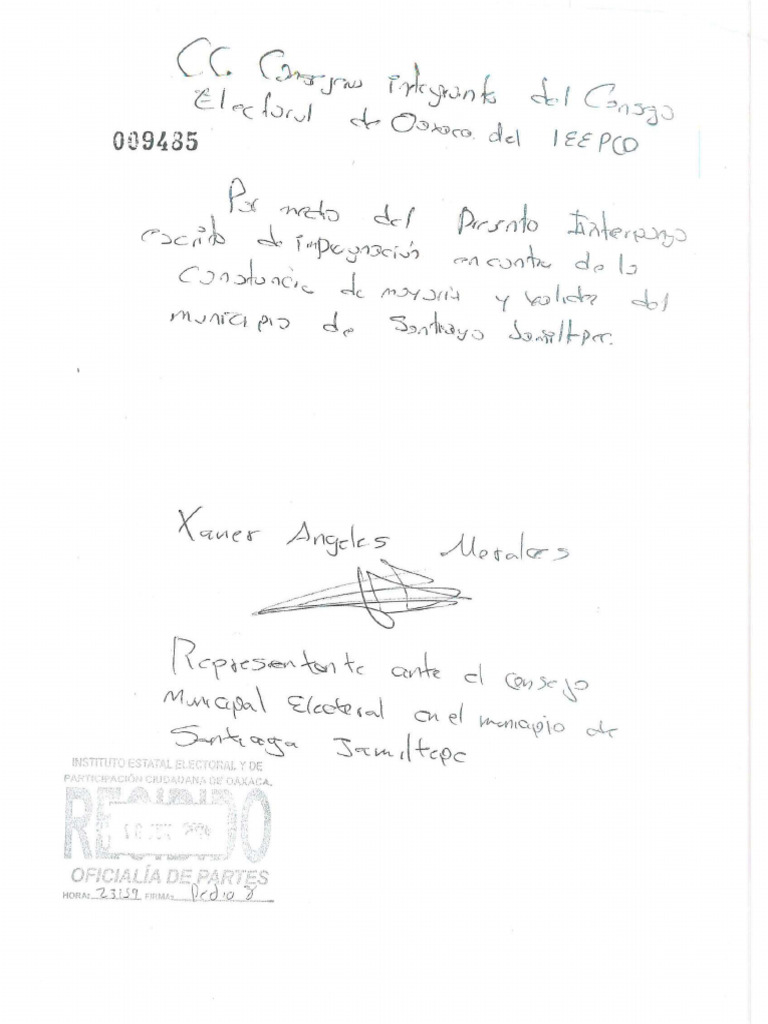 CC. Consejeros integrante del Consejo
Electoral de Oaxaca del IEEPCO
009485
Por medio del Presento Interpongo
escrito de impugnación en contra de la
Constancia de mayoria y valides del
municipio de Santiago Jamiltepec.
Xavier Angeles Morales
Representante ante el consejo
Municipal Electoral en el municipio de
Santiago Jamiltepc
INSTITUTO ESTATAL ELECTORAL Y DE
PARTICIPACIÓN CIUDADANA DE OAXACA.
RECIBIDO
OFICIALÍA DE PARTES
HORA: 23:59 FIRMA: Pedro